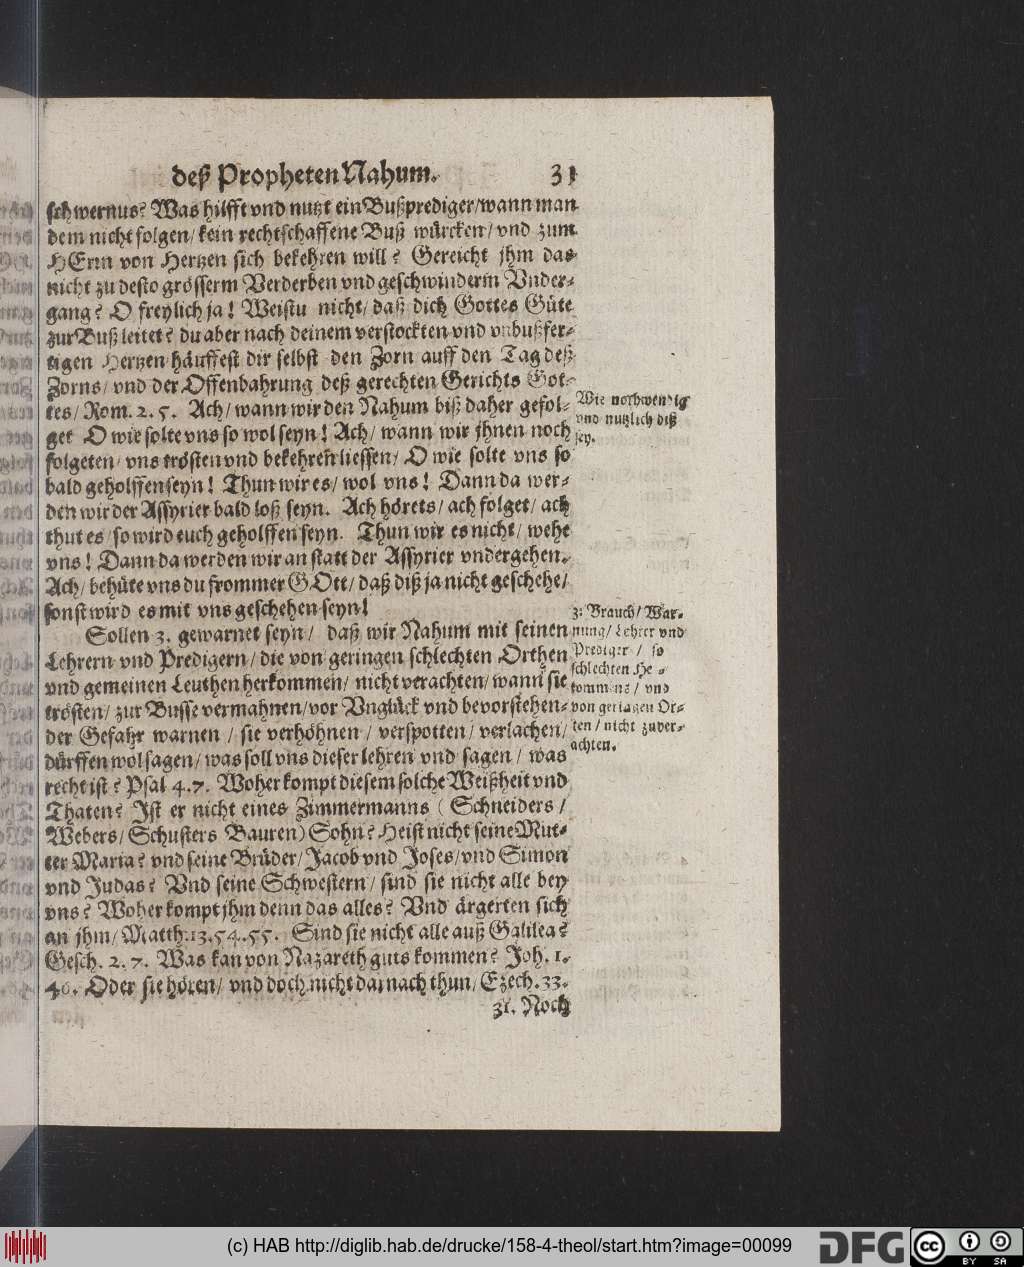 deß Propheten Nahum. 31
schwernus? Was hilfft vnd nutzt ein Bußprediger/wann man
dem nicht folgen/ kein rechtschaffene Buß würcken/ vnd zum
HErrn von Hertzen sich bekehren will? Gereicht jhm das
nicht zu desto grösserm Verderben vnd geschwinderm Vnder-
gang? O freylich ja! Weistu nicht/ daß dich Gottes Güte
zur Buß leitet? du aber nach deinem verstockten vnd vnbußfer-
tigen Hertzen häuffest dir selbst den Zorn auff den Tag deß
Zorns/ vnd der Offenbahrung deß gerechten Gerichts Got-
tes/ Rom. 2. 5. Ach/ wann wir den Nahum biß daher gefol-
get O wie solte vns so wol seyn! Ach/ wann wir jhnen noch
folgeten/ vns trösten vnd bekehren liessen/ O wie solte vns so
bald geholffen seyn! Thun wir es/ wol vns! Dann da wer-
den wir der Assyrier bald loß seyn. Ach hörets/ ach folget/ ach
thut es/ so wird euch geholffen seyn. Thun wir es nicht/ wehe
vns! Dann da werden wir an statt der Assyrier vndergehen.
Ach/ behüte vns du frommer GOtt/ daß diß ja nicht geschehe/
sonst wird es mit vns geschehen seyn!
Wie nothwendig
vnd nutzlich diß
sey.
Sollen 3. gewarnet seyn/ daß wir Nahum mit seinen
Lehrern vnd Predigern/ die von geringen schlechten Orthen
vnd gemeinen Leuthen herkommen/ nicht verachten/ wann sie
trösten/ zur Busse vermahnen/vor Vnglück vnd bevorstehen-
der Gefahr warnen / sie verhöhnen / verspotten / verlachen/
dürffen wol sagen/ was soll vns dieser lehren vnd sagen / was
recht ist? Psal 4. 7. Woher kompt diesem solche Weißheit vnd
Thaten? Ist er nicht eines Zimmermanns ( Schneiders /
Webers/ Schusters Bauren) Sohn? Heist nicht seine Mut-
ter Maria? vnd seine Brüder/ Jacob vnd Joses/vnd Simon
vnd Judas? Vnd seine Schwestern/ sind sie nicht alle bey
vns? Woher kompt jhm denn das alles? Vnd ärgerten sich
an jhm/ Matth. 13. 54. 55. Sind sie nicht alle auß Galilea?
Gesch. 2. 7. Was kan von Nazareth guts kommen? Joh. 1.
46. Oder sie hören/ vnd doch nicht darnach thun/ Ezech. 33.
31. Noch
3. Brauch/ War-
nung/ Lehrer vnd
Prediger / so
schlechten He-
kommens / vnd
von geringen Or-
ten / nicht zuver-
achten.
(c) HAB http://diglib.hab.de/drucke/158-4-theol/start.htm?image=00099
DFG
cc
BY SA